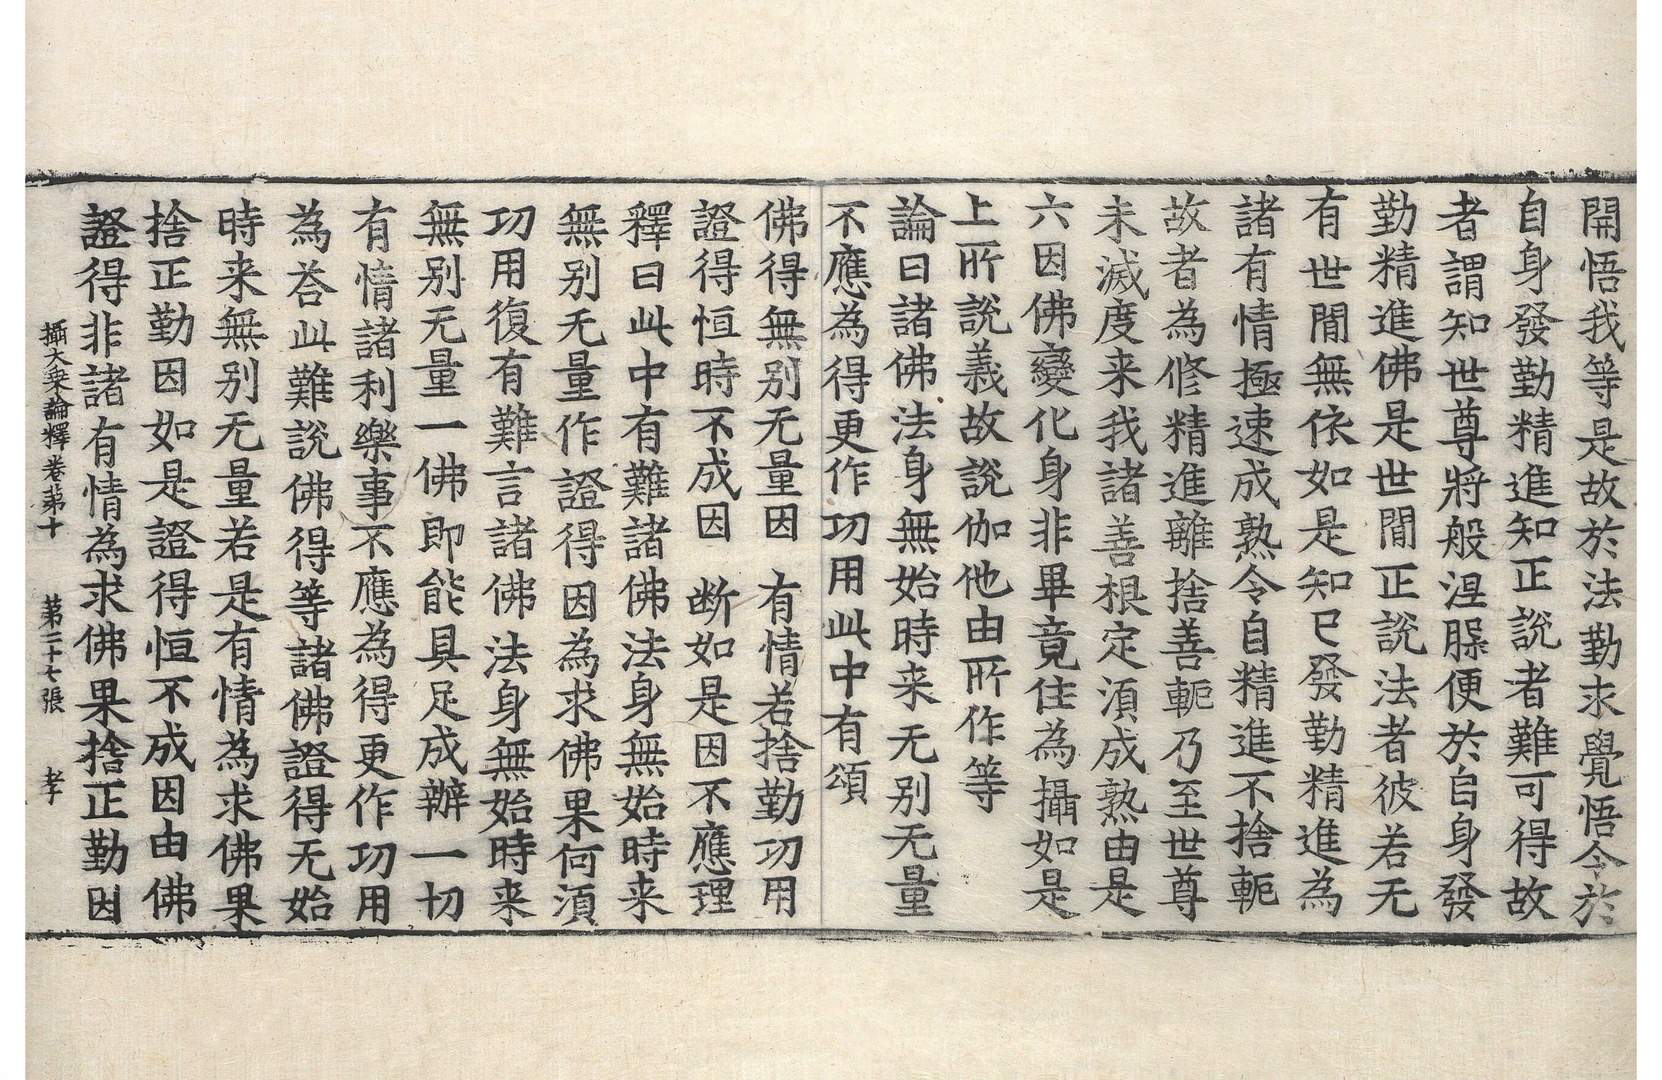 開悟我等是故於法勤求覺悟令於
自身發勤精進知正說者難可得故
者謂知世尊將般涅槃便於自身發
勤精進佛是世間正說法者彼若无
有世間無依如是知已發勤精進為
諸有情極速成熟令自精進不捨軛
故者為修精進離捨善軛乃至世尊
未滅度来我諸善根定湏成熟由是
六因佛變化身非畢竟住為攝如是
上所說義故說伽他由所作等
論曰諸佛法身無始時来无別无量
不應為得更作功用此中有頌
佛得無別无量因　有情若捨勤功用
證得恒時不成因　断如是因不應理
釋曰此中有難諸佛法身無始時来
無別无量作證得因為求佛果何湏
功用復有難言諸佛法身無始時来
無別无量一佛即能具足成辦一切
有情諸利樂事不應為得更作功用
為荅此難說佛得等諸佛證得无始
時来無別无量若是有情為求佛果
捨正勤因如是證得恒不成因由佛
證得非諸有情為求佛果捨正勤因
攝大乘論釋卷第十　第二十七張　孝